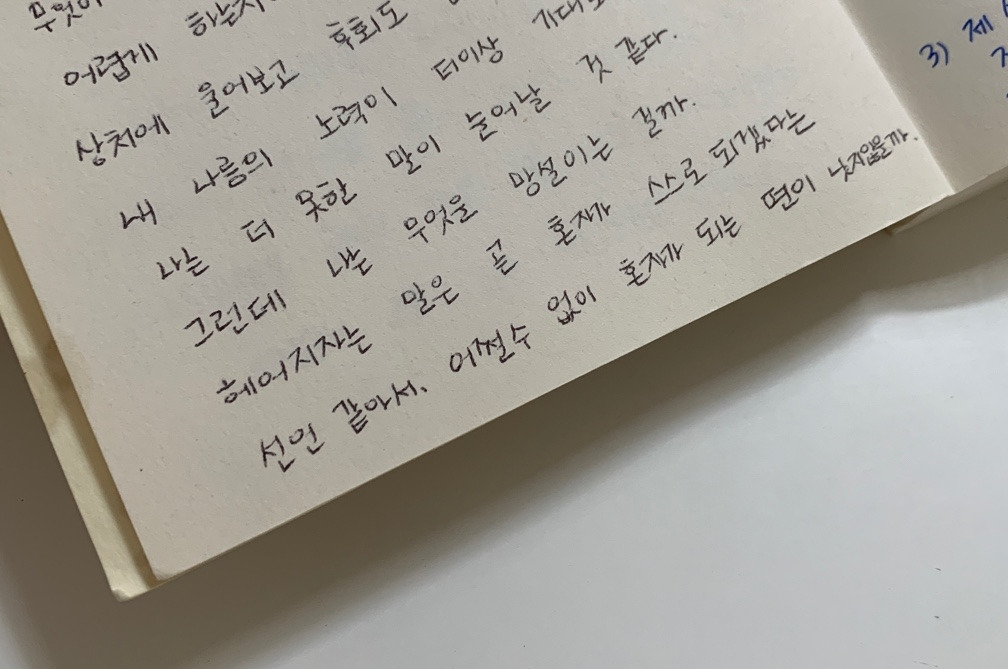 무엇이
어렵게 하는지
상처에 울어보고 후회도
내 나름의 노력이 더이상 기대로
나는 더 못한 말이 늘어날 것 같다.
그런데 나는 무엇을 망설이는 걸까.
헤어지자는 말은 곧 혼자가 스스로 되겠다는
선언 같아서. 어쩔수 없이 혼자가 되는 편이 낫지않을까.
3) 제